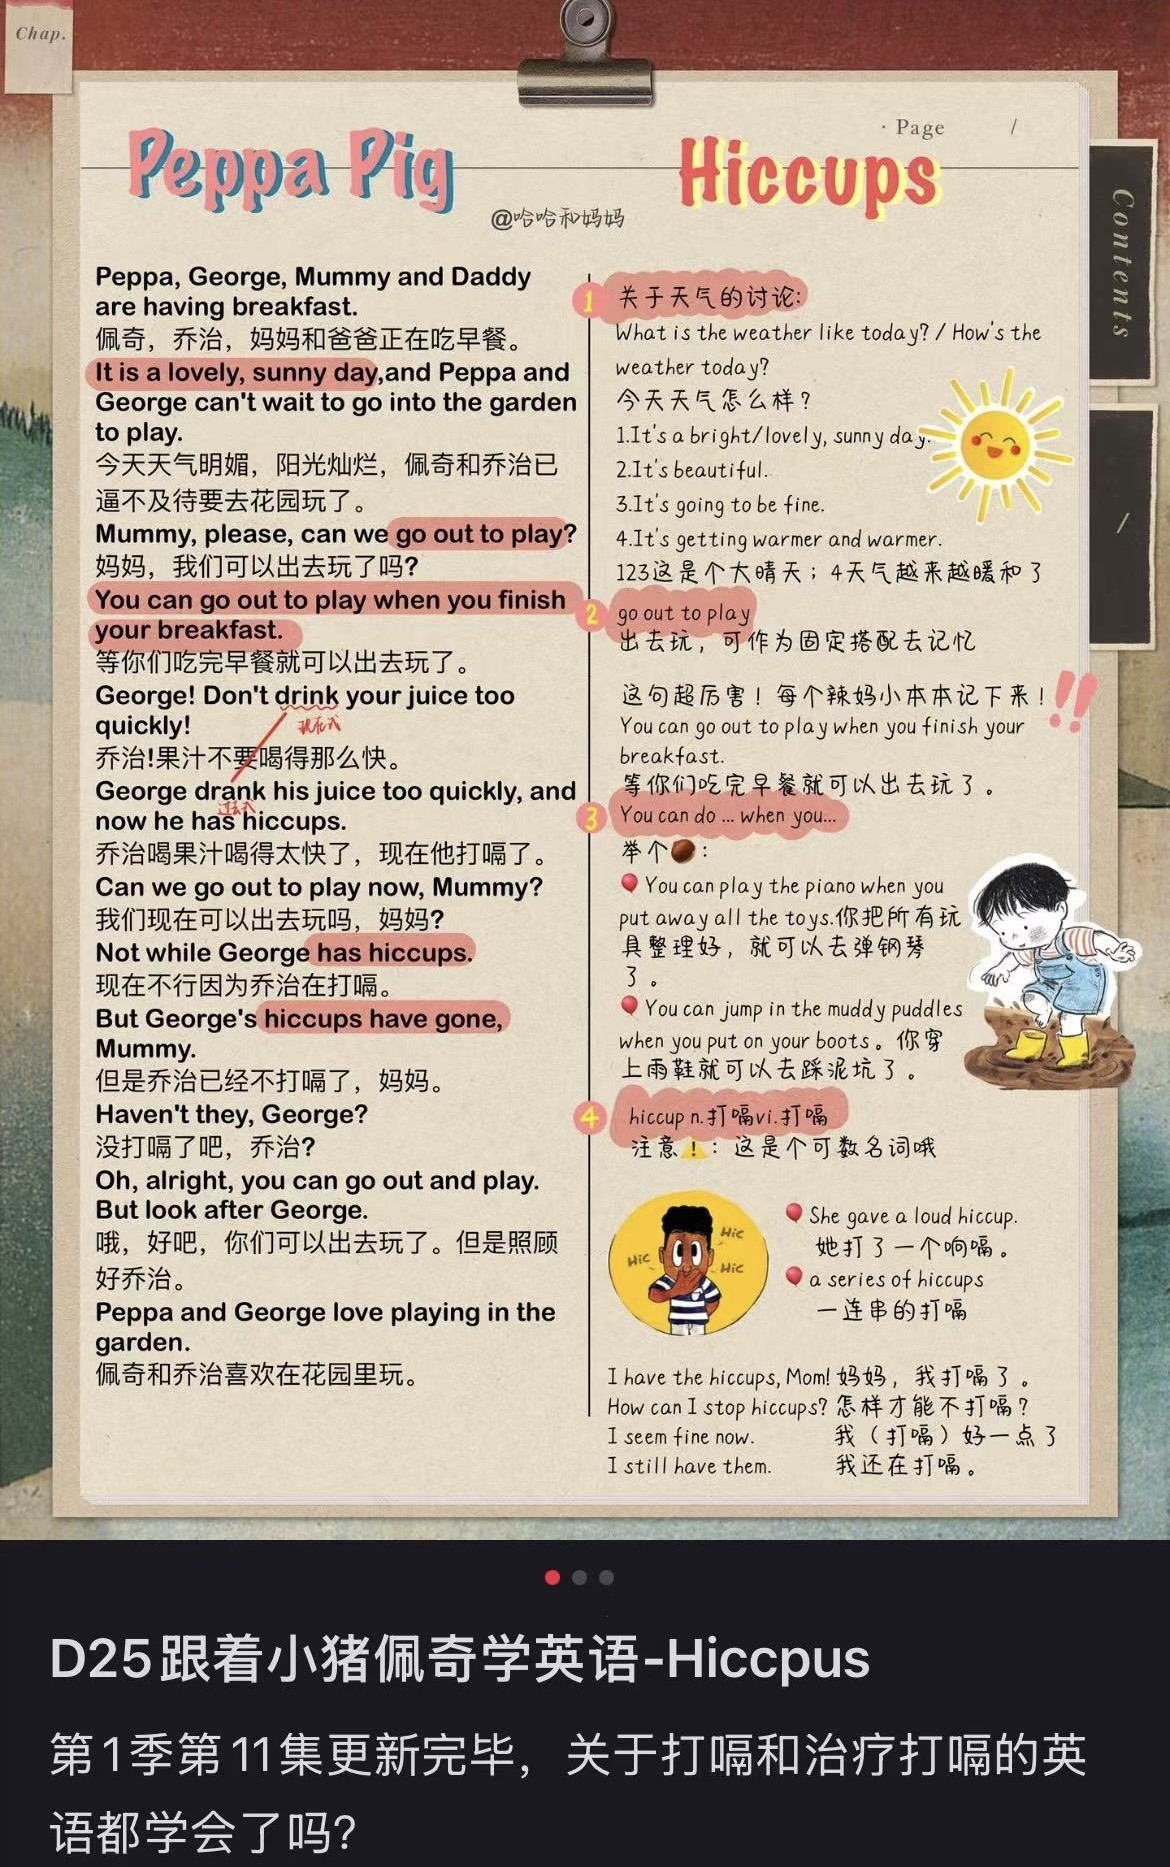 Chap.
· Page /
Peppa Pig
Hiccups
@哈哈和妈妈
Contents
/
Peppa, George, Mummy and Daddy
are having breakfast.
佩奇，乔治，妈妈和爸爸正在吃早餐。
It is a lovely, sunny day,and Peppa and
George can't wait to go into the garden
to play.
今天天气明媚，阳光灿烂，佩奇和乔治已
逼不及待要去花园玩了。
Mummy, please, can we go out to play?
妈妈，我们可以出去玩了吗?
You can go out to play when you finish
your breakfast.
等你们吃完早餐就可以出去玩了。
George! Don't drink your juice too
quickly!
现在式
乔治!果汁不要喝得那么快。
George drank his juice too quickly, and
过去式
now he has hiccups.
乔治喝果汁喝得太快了，现在他打嗝了。
Can we go out to play now, Mummy?
我们现在可以出去玩吗，妈妈?
Not while George has hiccups.
现在不行因为乔治在打嗝。
But George's hiccups have gone,
Mummy.
但是乔治已经不打嗝了，妈妈。
Haven't they, George?
没打嗝了吧，乔治?
Oh, alright, you can go out and play.
But look after George.
哦，好吧，你们可以出去玩了。但是照顾
好乔治。
Peppa and George love playing in the
garden.
佩奇和乔治喜欢在花园里玩。
1 关于天气的讨论:
What is the weather like today? / How's the
weather today?
今天天气怎么样？
1.It's a bright/lovely, sunny day.
2.It's beautiful.
3.It's going to be fine.
4.It's getting warmer and warmer.
123这是个大晴天；4天气越来越暖和了
2 go out to play
出去玩，可作为固定搭配去记忆
这句超厉害！每个辣妈小本本记下来！!!
You can go out to play when you finish your
breakfast.
等你们吃完早餐就可以出去玩了。
3 You can do ... when you...
举个🌰：
You can play the piano when you
put away all the toys.你把所有玩
具整理好，就可以去弹钢琴
了。
You can jump in the muddy puddles
when you put on your boots。你穿
上雨鞋就可以去踩泥坑了。
4 hiccup n.打嗝vi.打嗝
注意⚠️：这是个可数名词哦
Hic
Hic
Hic
She gave a loud hiccup.
她打了一个响嗝。
a series of hiccups
一连串的打嗝
I have the hiccups, Mom! 妈妈，我打嗝了。
How can I stop hiccups? 怎样才能不打嗝？
I seem fine now. 我（打嗝）好一点了
I still have them. 我还在打嗝。
D25跟着小猪佩奇学英语-Hiccpus
第1季第11集更新完毕，关于打嗝和治疗打嗝的英
语都学会了吗？